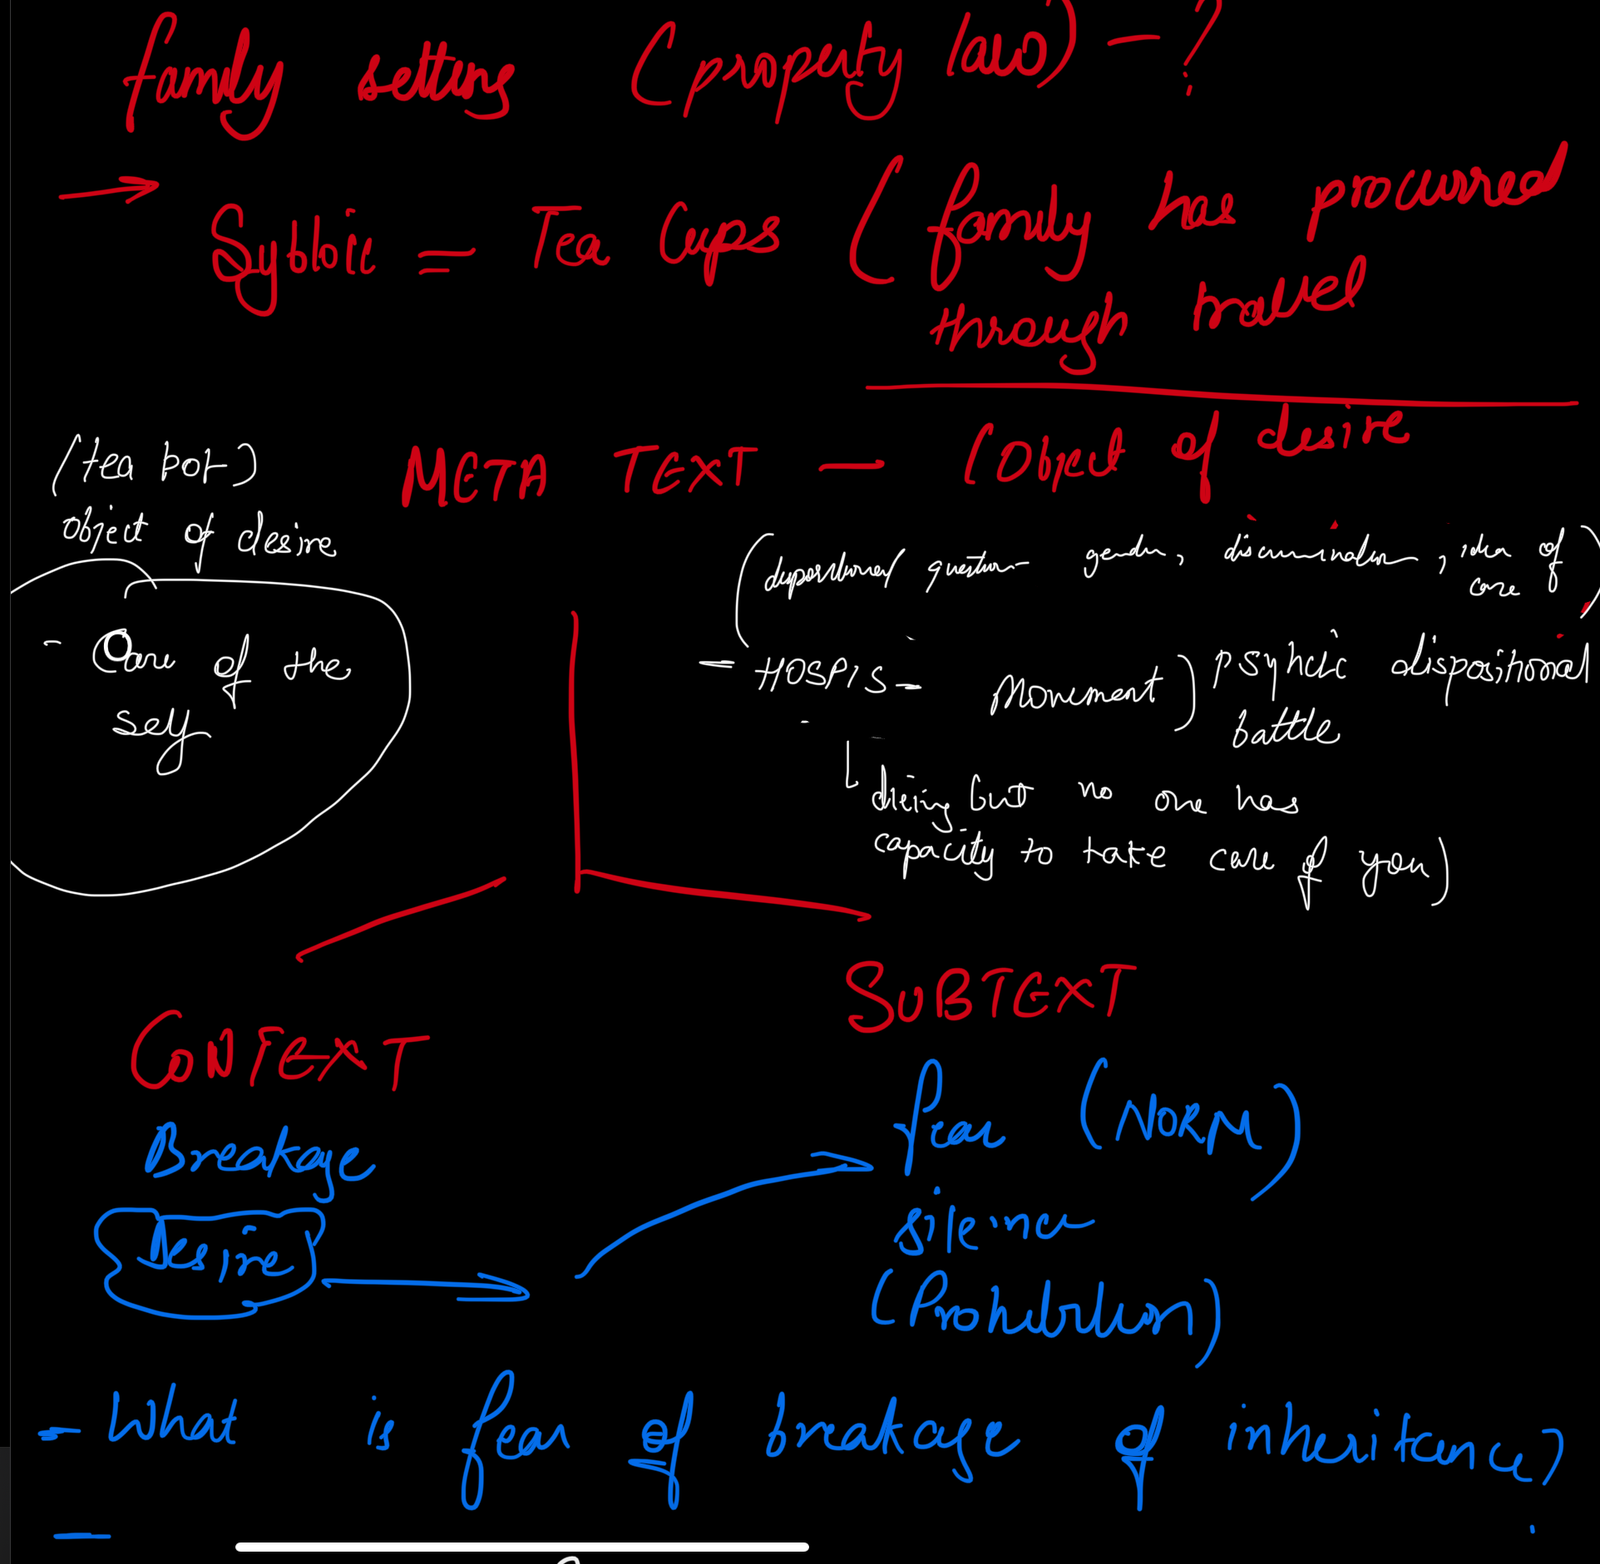 family setting (property law) - ?
→ Sybloic = Tea Cups (family has procurred
through travel
(tea pot)
object of desire
- Care of the
self
META TEXT - (Object of desire
(dispositional question - gender, discrimination, idea of
care)
- HOSPIS - Movement) psyhcic dispositional
battle
dieing but no one has
capacity to take care of you)
CONTEXT
Breakage
Desire
SUBTEXT
fear (NORM)
silence
(Prohibition)
- What is fear of breakage of inheritance?
-